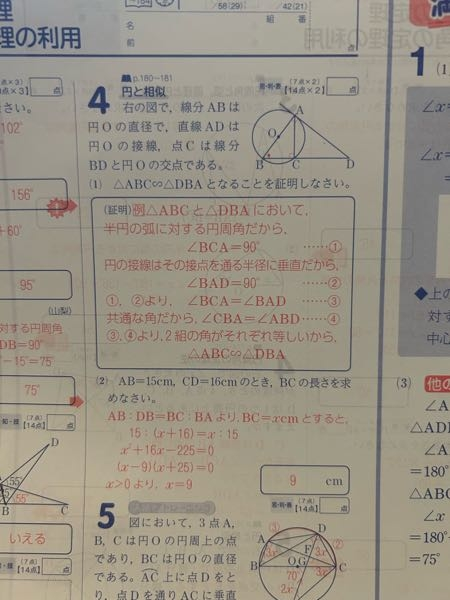 理
理の利用
/58(29)
/42(21)
名
前
組
番
点
p.180~181
4 円と相似
(7点×2)
【14点×2】
点
右の図で，線分ABは
円Oの直径で，直線ADは
円Oの接線，点Cは線分
BDと円Oの交点である。
A
O
B
C
D
(1) △ABC∽△DBAとなることを証明しなさい。
(証明) 例 △ABCと△DBAにおいて，
半円の弧に対する円周角だから，
∠BCA＝90° ……①
円の接線はその接点を通る半径に垂直だから，
∠BAD＝90° ……②
①，②より，∠BCA＝∠BAD ……③
共通な角だから，∠CBA＝∠ABD ……④
③，④より，2組の角がそれぞれ等しいから，
△ABC∽△DBA
(2) AB＝15cm，CD＝16cmのとき，BCの長さを求
めなさい。
AB：DB＝BC：BAより，BC＝xcmとすると，
15：(x＋16)＝x：15
x²＋16x－225＝0
(x－9)(x＋25)＝0
x＞0より，x＝9
9 cm
5
(7点)
【14点】
点
図において，3点A，
B，Cは円Oの円周上の点
であり，BCは円Oの直径
である。AC上に点Dをと
り，点Dを通りACに垂直
③
A
D
②
3x
F
3x
O
G
B
C
70°
2x
点×3)
×3】
点
102°
156°
＋60°
95°
(山梨)
対する円周角
DB＝90°
－15°＝75°
75°
(7点)
【14点】
点
D
55°
55°
B
C
いえる
1
(1
∠x＝
∠x＝
◆上の
対す
中心
(3) 他の
∠A
△ADI
＝180°
△ABC
∠x
＝180°－
＝75°